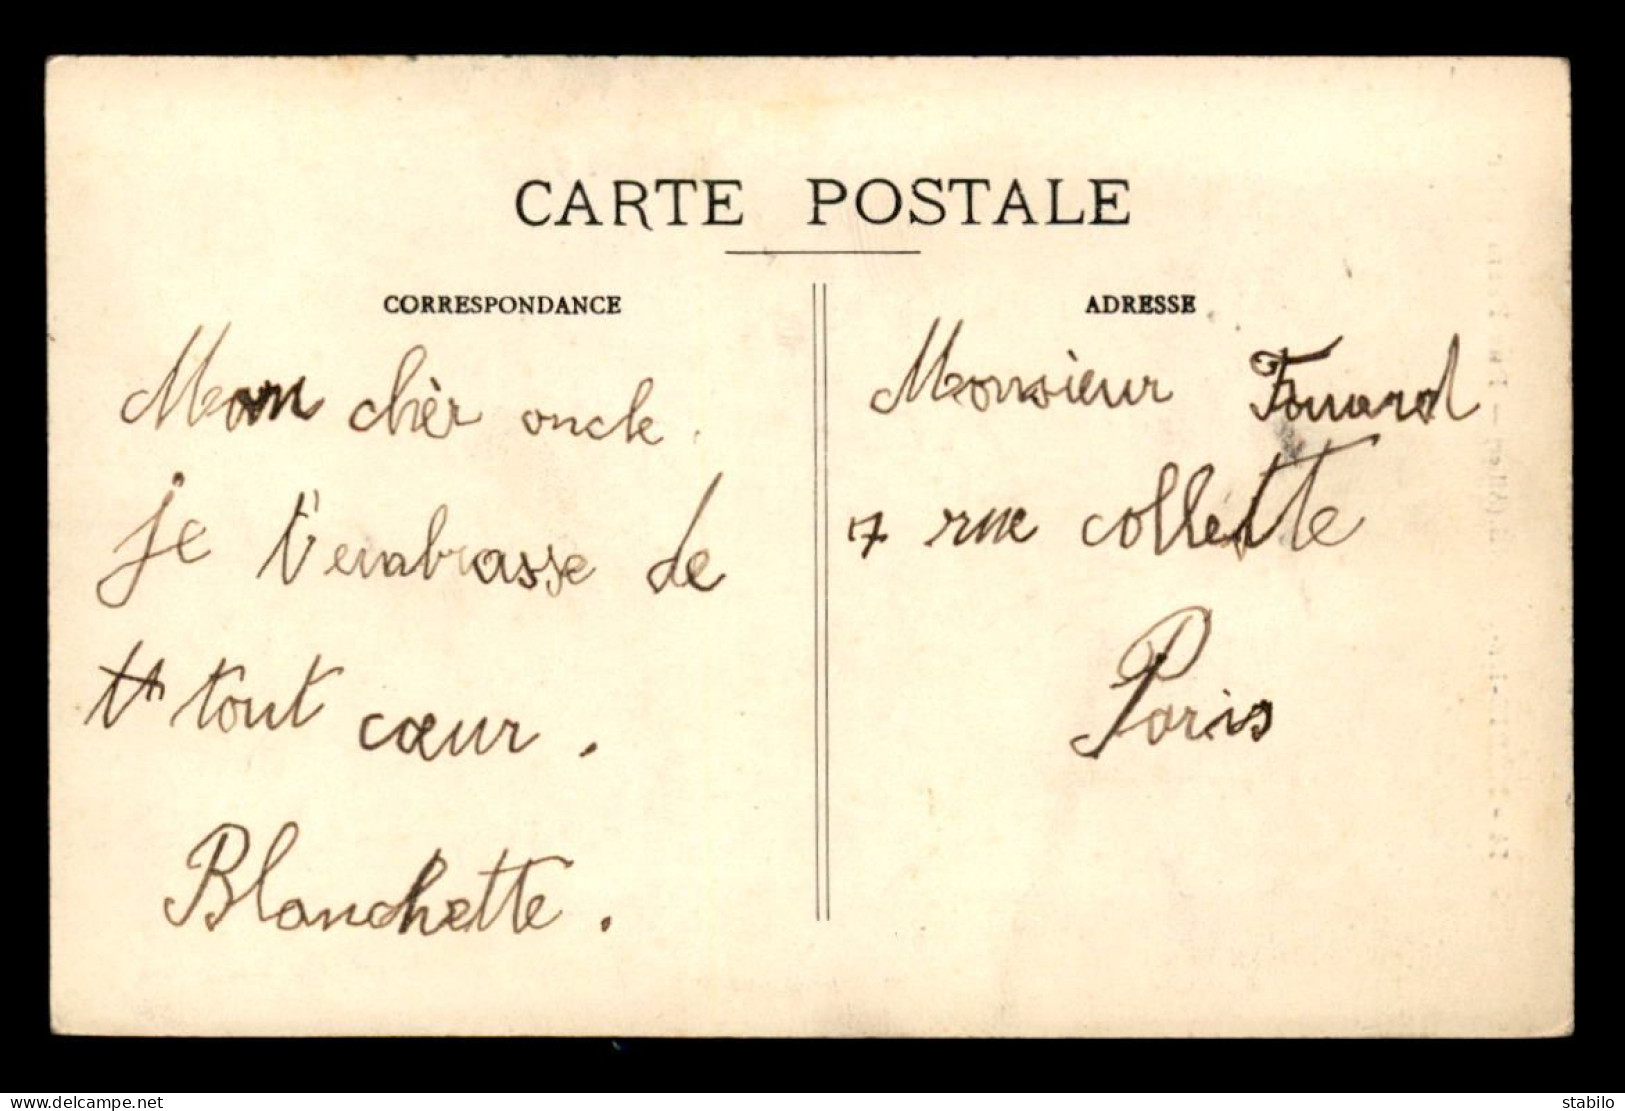 CARTE POSTALE
CORRESPONDANCE
Mon chèr oncle
je t'embrasse de
tout cœur.
Blanchette.
ADRESSE
Monsieur Fouard
7 rue collette
Paris
www.delcampe.net
stabilo